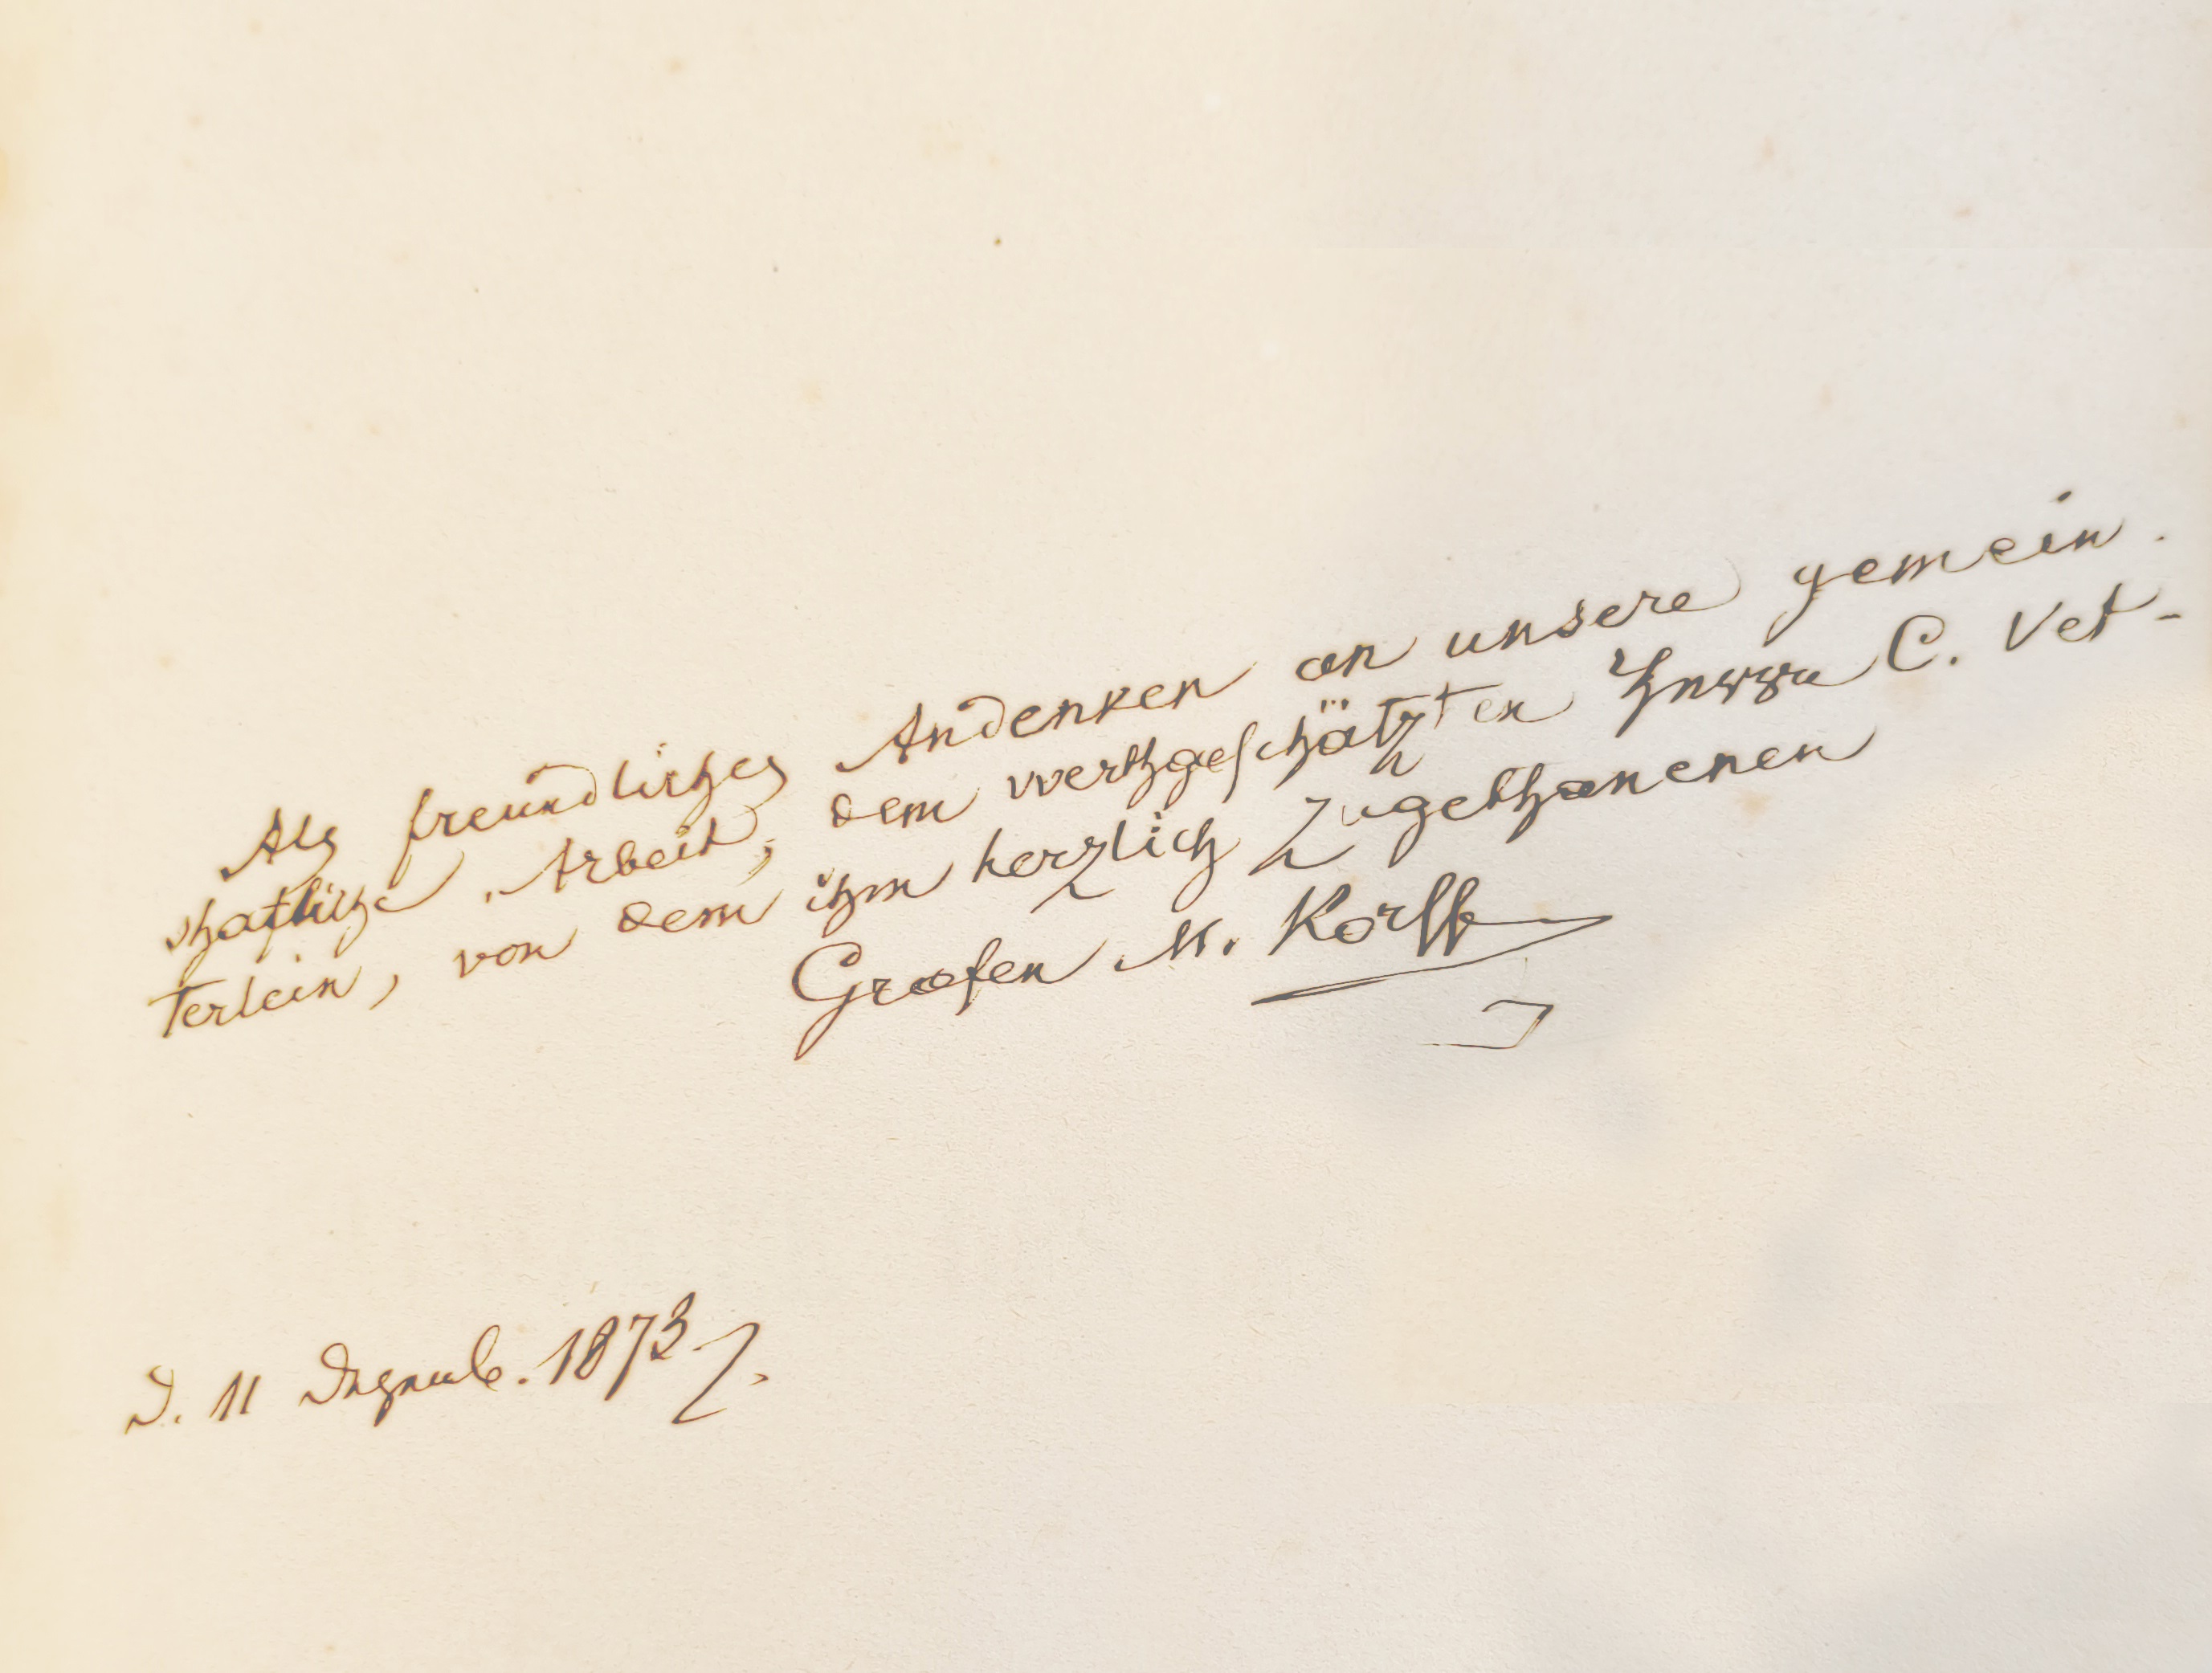 Als freundliches Andenken an unsere gemein-
schaftliche Arbeit, dem werthgeschätzten Herrn C. Vet-
terlein, von dem ihm herzlich zugethanenen
Grafen M. Korff
D. 11 Dezemb. 1873